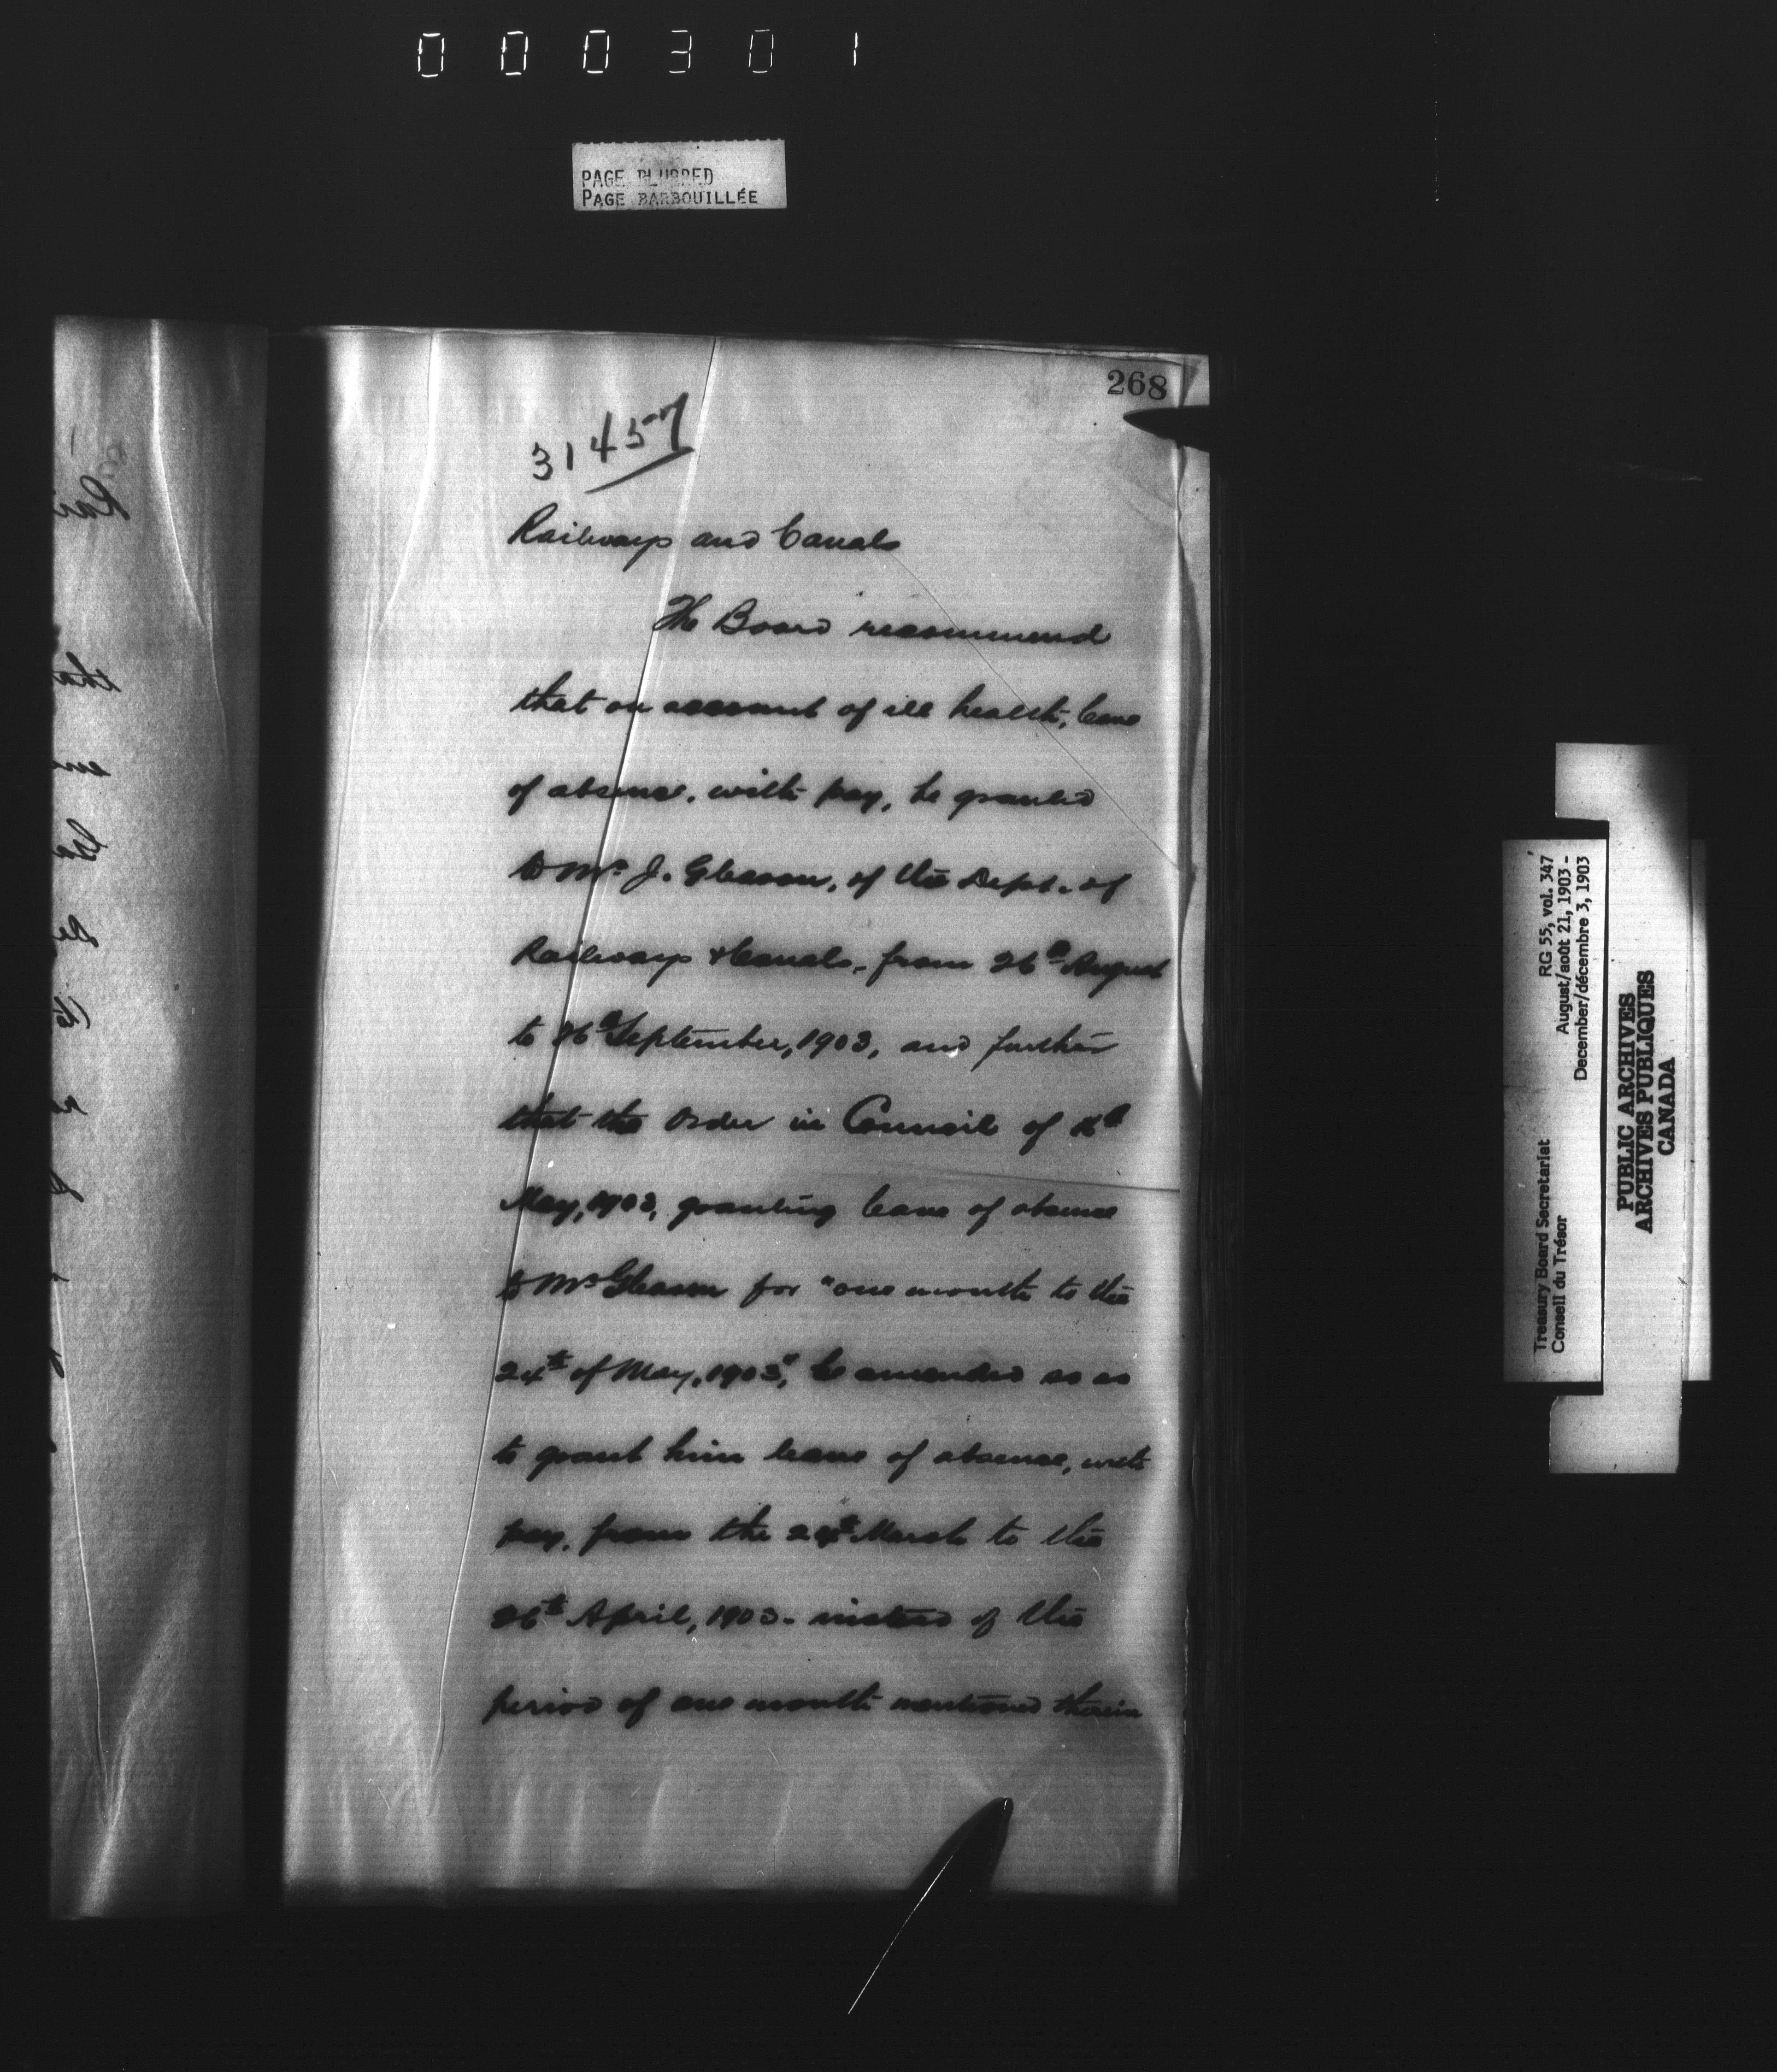 000301
PAGE BLURRED
PAGE BARBOUILLÉE
268
31457
Railways and Canals
The Board recommend
that on account of ill health, leave
of absence, with pay, be granted
to Mr. J. Gleason, of the Dept. of
Railways & Canals, from 26th August
to 26th September, 1903, and further
that the Order in Council of
May, 1903, granting leave of absence
to Mr Gleason for "one month to the
24th of May, 1903", be amended so as
to grant him leave of absence, with
pay, from the 24th March to the
26th April, 1903 - instead of the
period of one month mentioned therein
Treasury Board Secretariat RG 55, vol. 347
Conseil du Trésor August/août 21, 1903 -
December/décembre 3, 1903
PUBLIC ARCHIVES
ARCHIVES PUBLIQUES
CANADA